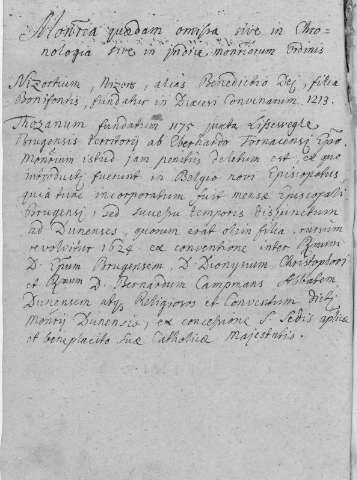 Mon^ria quædam omissa sive in Chro-
nologia sive in indice mon^riorum Ordinis
Nizortium, Nizors, aliàs Benedictio Dej, filia
Bonifontis, fundatur in Diœcesi Convenarum. 1213.
Thozanum fundatum 1175 juxta Lissewegle
Brugensis territorij ab Eberhardo Tornacensj Epõ.
Mon^rium istud jam penitùs deletum est, ex quo
introducti fuerunt in Belgio novi Episcopatus
quia tunc incorporatum fuit mensæ Episcopali
Brugensi, sed successu temporis disjunctum
ad Dunenses, quorum erat olim filia, rursum
revolvitur 1624 ex conventione inter R^mum
D. Epum Brugensem, D. Dionysium Christophori
et R^mum D. Bernardum Campmans Abbatem
Dunensem atq; Religiosos et Conventum dicti
Mon^rij Dunensis, ex concessione S. Sedis aplicæ
et beneplacito suæ Catholicæ Majestatis.